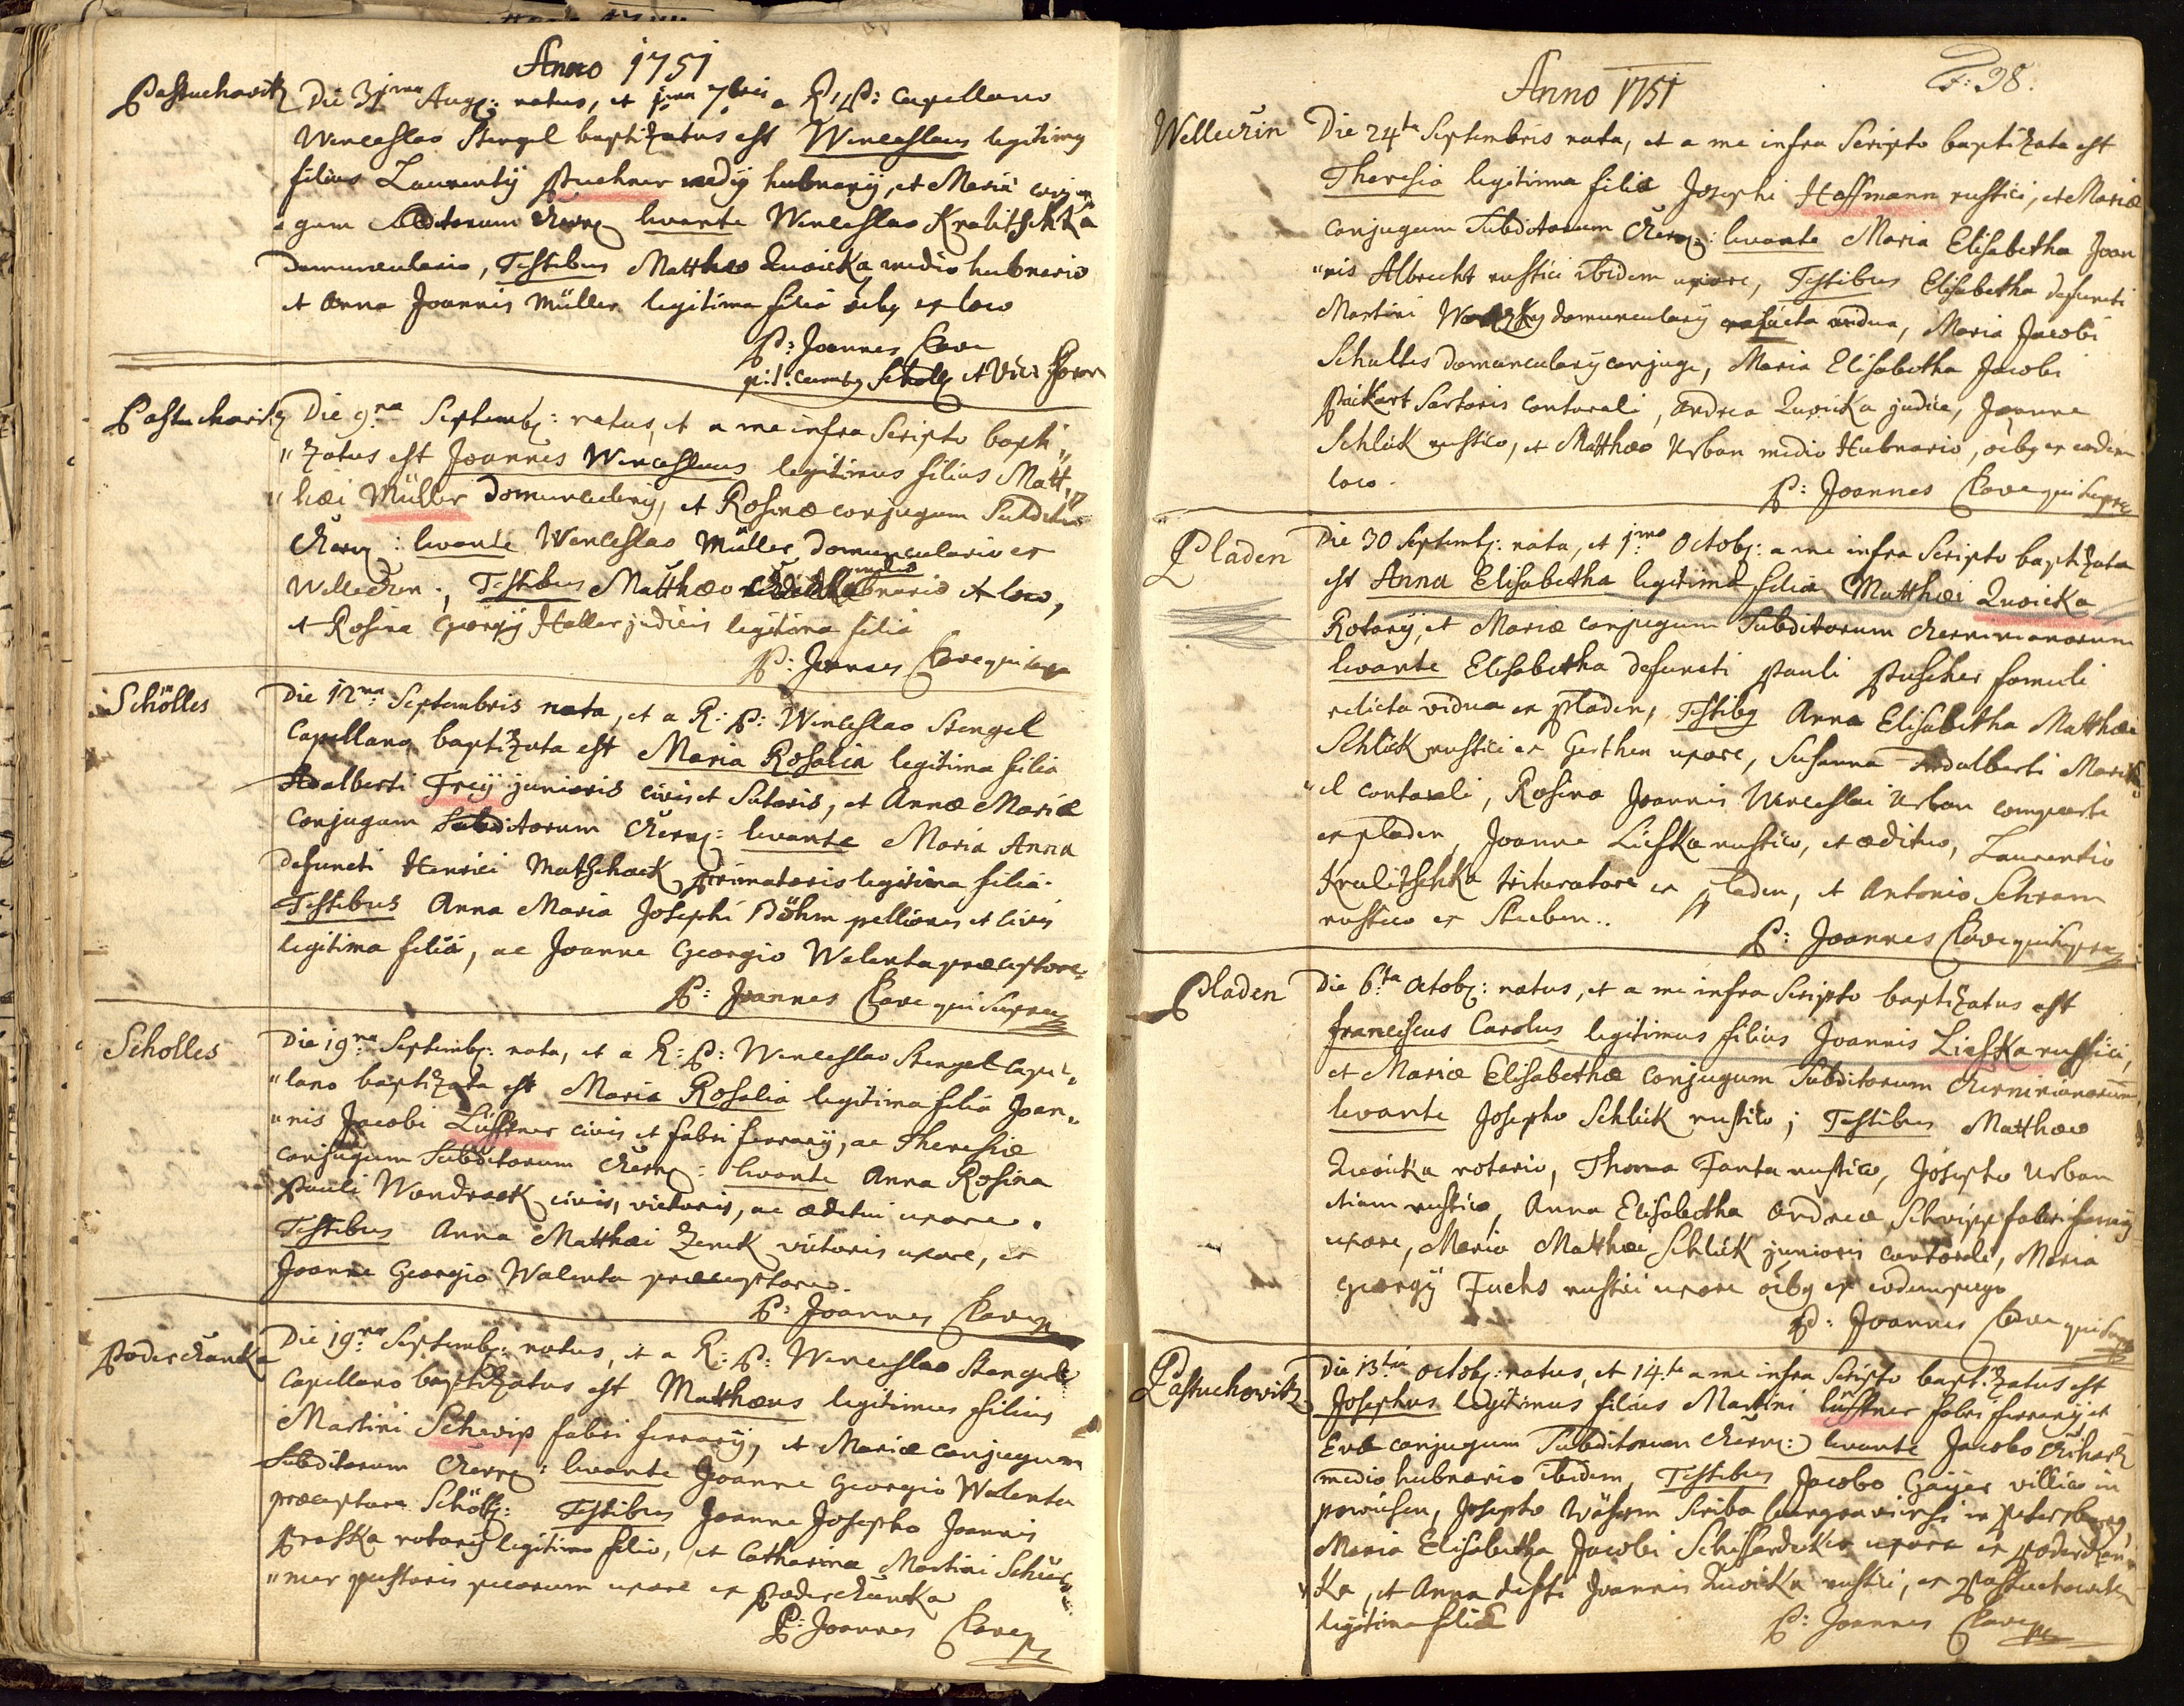 Anno 1751
Pastuchovitz
Die 31ma Aug: natus, et 1ma 7bris a R: P: Capellano
Wenceslao Stengel baptizatus est Wenceslaus legitimg
filius Laurentÿ Puchner medÿ hubnarÿ, et Mariæ conju
gum Subditorum Czern: levante Wenceslao Kralitschka
Domunculario, Testibus Matthæo Zwicka medio hubnario
et Anna Joannis Müller legitima filia oibg ex loco
P: Joannes Clave
p: t: Schöll: et Vici
Pastuchovitz
Die 9na Septemb: natus, et a me infra Scripto bapti„
„zatus est Joannes Wenceslaus legitimus filius Matt„
„hæi Müller Domuncularÿ, et Rosinæ conjugum Subdit
Czern: levante Wenceslao Müller Domunculario ex
Welleczin, Testibus Matthæo medio hubnario et loco,
et Rosina Georgÿ Haller judicis legitima filia
P: Joannes Clave qui supra
Schölles
Die 12ma Septembris nata, et a R: P: Wenceslao Stengel
Capellano baptizata est Maria Rosalia legitima filia
Adalberti Freÿ junioris civis et Sutoris, et Annæ Mariæ
Conjugum Subditorum Czern: levante Maria Anna
defuncti Henrici Matzhack primatoris legitima filia.
Testibus Anna Maria Josephi Böhm pellionis et civis
legitima filia, ac Joanne Georgio Walenta præceptore.
P: Joannes Clave qui Supra
Scholles
Die 19na Septemb: nata, et a R: P: Wenceslao Stengel Capel„
„lano baptizata est Maria Rosalia legitima filia Joan„
„nis Jacobi Lüfftner civis et fabri ferrarÿ, ac Theresiæ
conjugum Subditorum Czern: levante Anna Rosina
Pauli Wondrack civis, victoris, ac æditui uxore.
Testibus Anna Matthæi Zenk victoris uxore, et
Joanne Georgio Walenta præceptore.
P: Joannes Clave
Poderczanka
Die 19na Septemb: natus, et a R: P: Wenceslao Stengel
Capellano baptizatus est Matthæus legitimus filius
Martini Schwip fabri ferrarÿ, et Mariæ conjugum
Subditorum Czern: levante Joanne Georgio Walenta
præceptore Schöll: Testibus Joanne Josepho Joannis
Praska rotarÿ legitimo filio, et Catharina Martini Schür„
„mer pastoris pecorum uxore ex Poderczanka
P: Joannes Clave
Anno 1751
F: 98.
Welleczin
Die 24ta Septembris nata, et a me infra Scripto baptizata est
Theresia legitima filia Josephi Hoffmann rustici, et Mariæ
conjugum Subditorum Czern: levante Maria Elisabetha Joan
„nis Albrecht rustici ibidem uxore, Testibus Elisabetha defuncti
Martini domuncularÿ relicta vidua, Maria Jacobi
Schultes domuncularÿ conjuge, Maria Elisabetha Jacobi
Paikert Sartoris contorali, Andrea Zwicka judice, Joanne
Schlik rustico, et Matthæo Urban medio Hubnario, oibg ex eodem
loco.
P: Joannes Clave qui supra
Pladen
Die 30 Septemb: nata, et 1ma Octob: a me infra Scripto baptizata
est Anna Elisabetha legitima filia Matthæi Zwicka
Rotarÿ, et Mariæ conjugum Subditorum Czerninianorum
levante Elisabetha defuncti Pauli Puscher famuli
relicta vidua ex Pladen, Testibg Anna Elisabetha Matthæi
Schlik rustici ex Gerthen uxore, Susanna Adalberti
„el contorali, Rosina Joannis Wenceslai Urban comparte
ex Pladen, Joanne Lischka rustico, et æditus, Laurentio
Kralitschka trituratore ex Pladen, et Antonio Schram
rustico ex Steben..
P: Joannes Clave qui supra
Pladen
Die 6ta Octob: natus, et a me infra Scripto baptizatus est
Franciscus Carolus legitimus filius Joannis Liehska rustici,
et Mariæ Elisabethæ conjugum Subditorum Czerninianorum
levante Josepho Schlik rustico; Testibus Matthæo
Zwicka rotario, Thoma Fanta rustico, Josepho Urban
etiam rustico, Anna Elisabetha Andreæ Schwipp fabri ferrarÿ
uxore, Maria Matthæi Schlik junioris contorali, Maria
Georgÿ Fuchs rustici uxore oibg ex eodem pago
P: Joannes Clave qui supra
Pastuchowitz
Die 13tia Octob: natus, et 14ta a me infra Scripto baptizatus est
Josephus legitimus filius Martini Lüfftner fabri ferrarÿ, et
Evæ conjugum Subditorum Czern: levante Jacobo
medio hubnario ibidem, Testibus Jacobo Gaÿer villico in
Powitsen, Josepho Scriba in Petersburg,
Maria Elisabetha Jacobi uxore ex Poderczan„
„ka, et Anna defti Joannis Zwicka rustici, ex Pastuchowitz
legitima filia
P: Joannes Clave